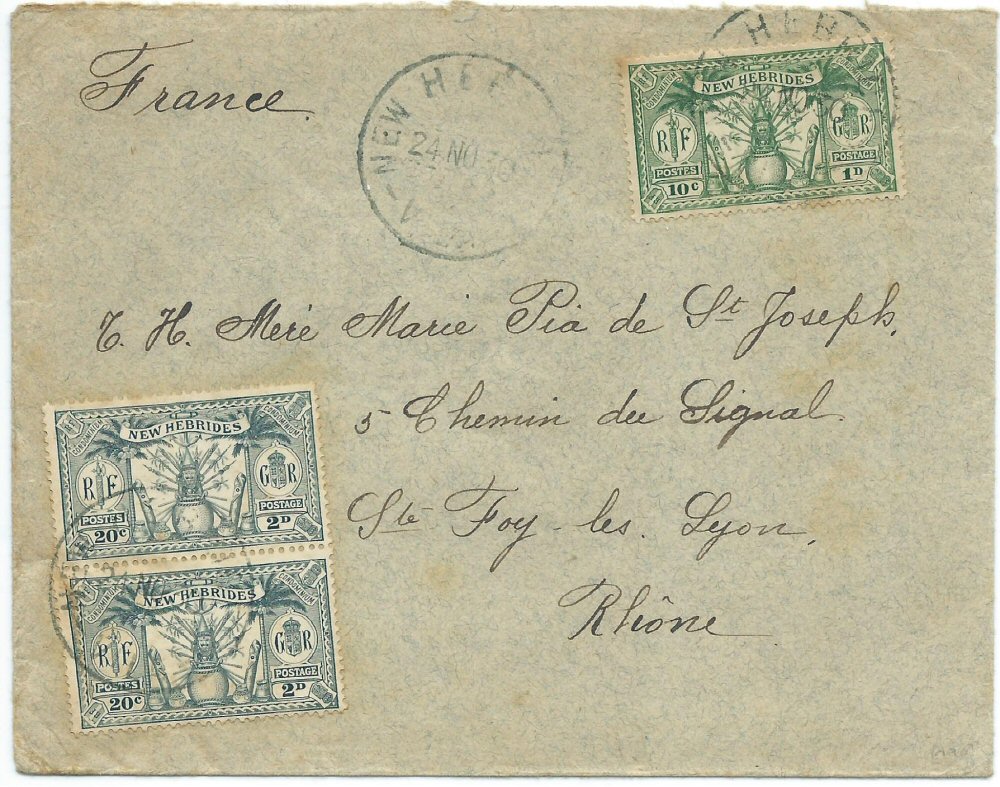 France
NEW HEB
24 NO 30
HEBR
NEW HEBRIDES
CONDOMINIUM CONDOMINIUM
R F G R
POSTES POSTAGE
10c 1D
T. H. Meré Marie Pia de St Joseph,
5 Chemin du Signal
Ste Foy-les-Lyon,
Rhône
NEW HEBRIDES
CONDOMINIUM CONDOMINIUM
R F G R
POSTES POSTAGE
20c 2D
NEW HEBRIDES
CONDOMINIUM CONDOMINIUM
R F G R
POSTES POSTAGE
20c 2D